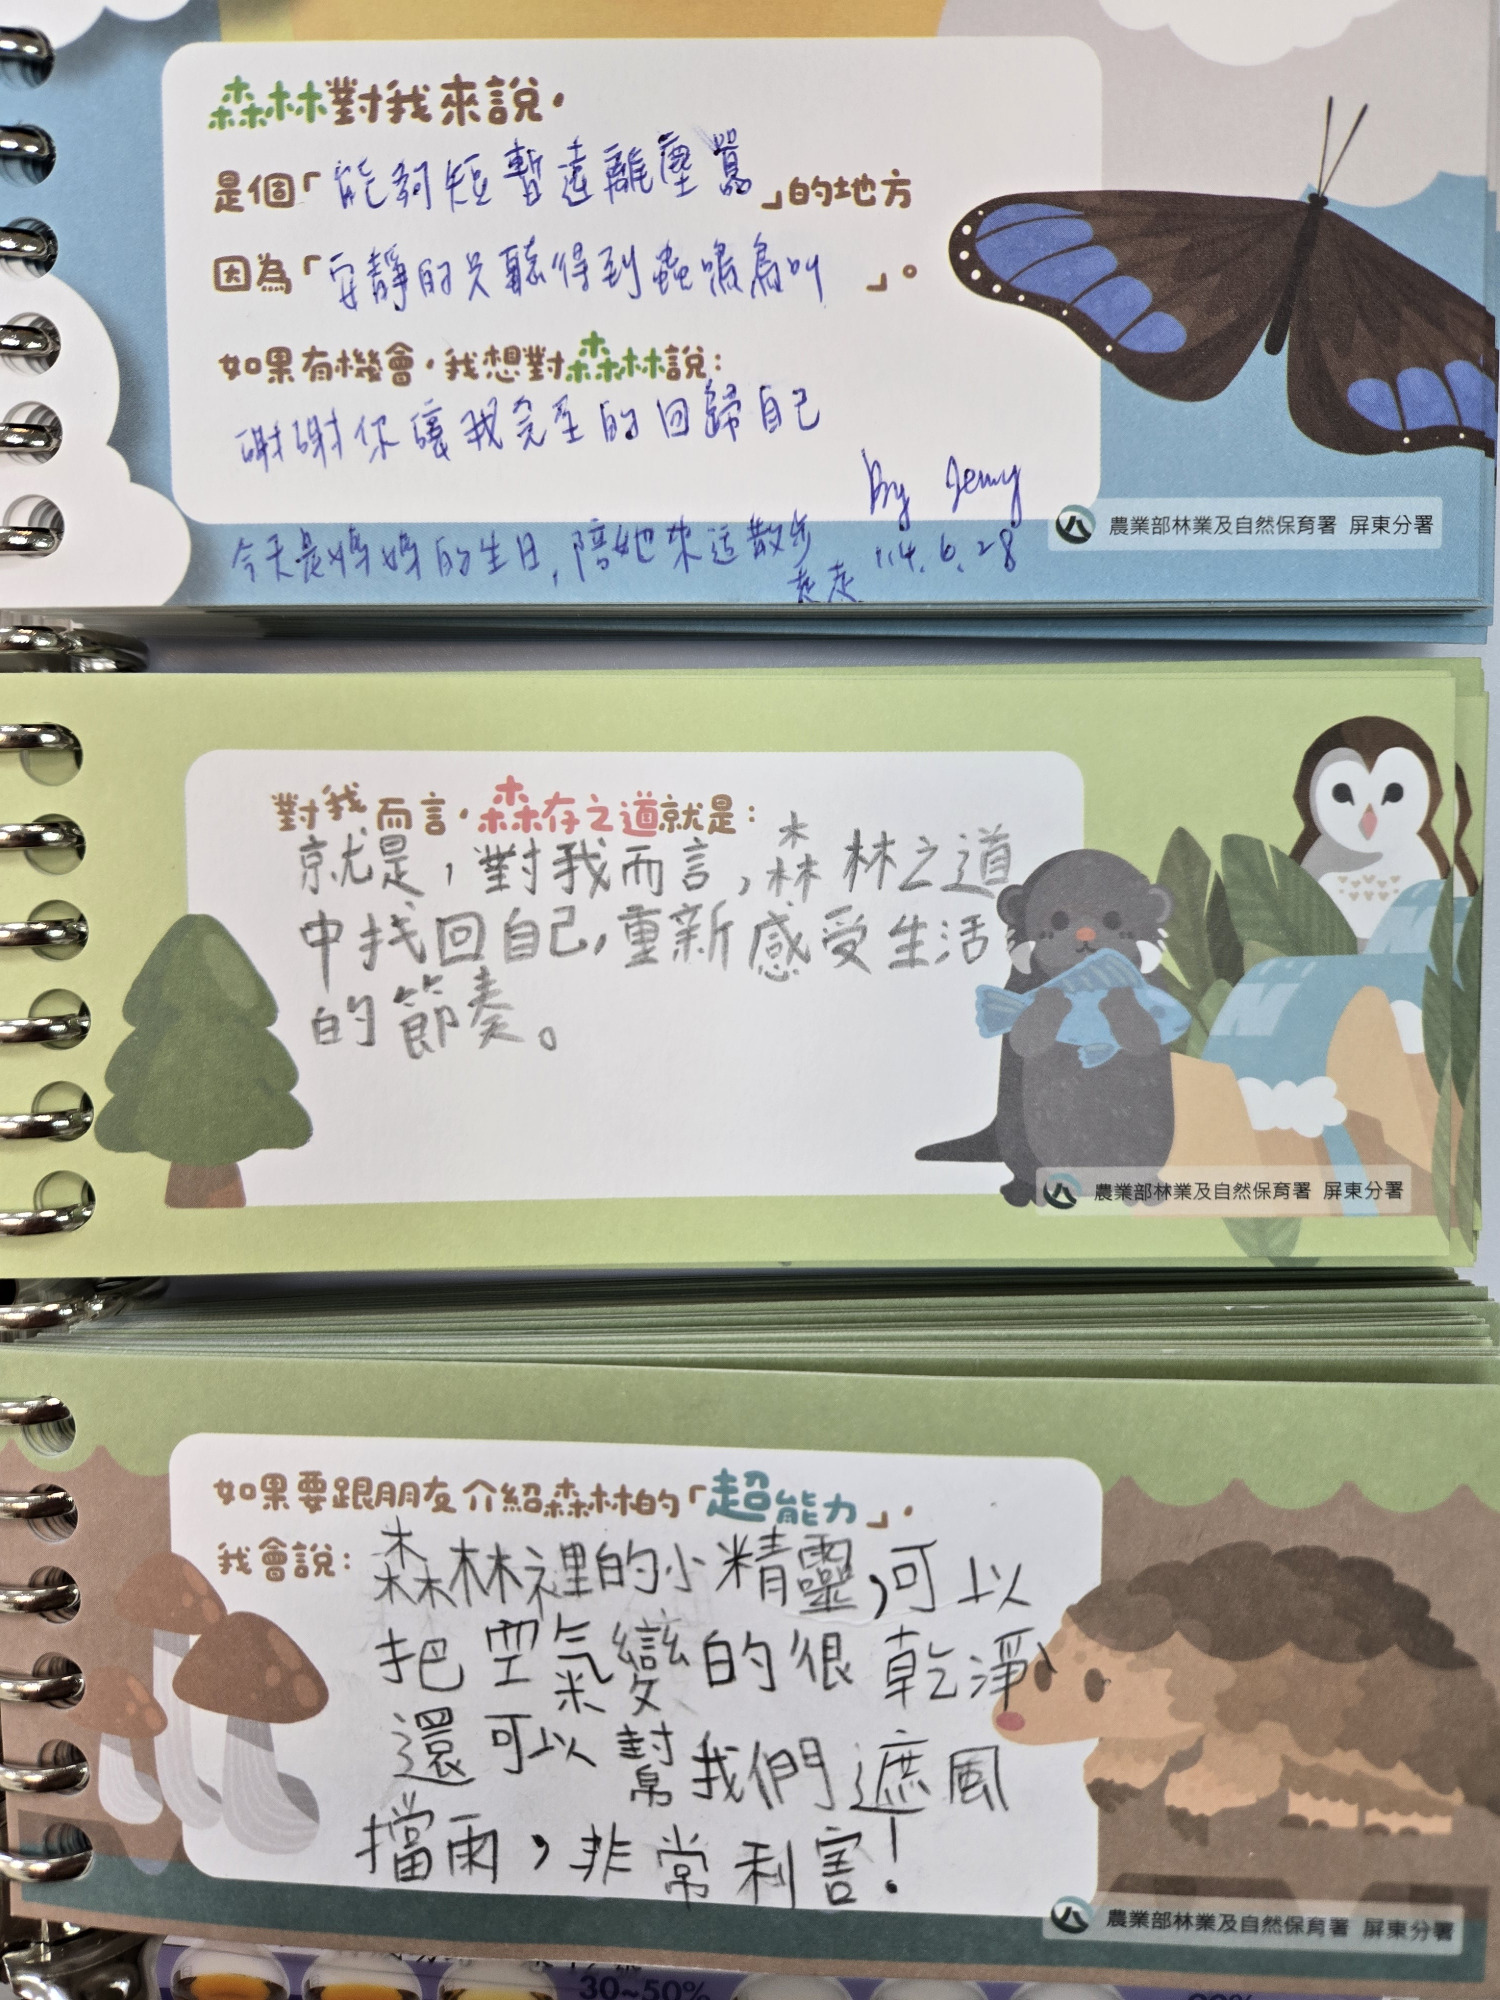 森林對我來說，
是個「能夠短暫遠離塵囂」的地方
因為「安靜的只聽得到蟲鳴鳥叫」。
如果有機會，我想對森林說：
謝謝你讓我完全的回歸自己
By Jenny
今天是媽媽的生日，陪她來這散步
走走
114.6.28
農業部林業及自然保育署 屏東分署
對我而言，森存之道就是：
就是，對我而言，森林之道
中找回自己，重新感受生活
的節奏。
農業部林業及自然保育署 屏東分署
如果要跟朋友介紹森林的「超能力」，
我會說：森林裡的小精靈，可以
把空氣變的很乾淨、
還可以幫我們遮風
擋雨，非常利害！
農業部林業及自然保育署 屏東分署
30~50%